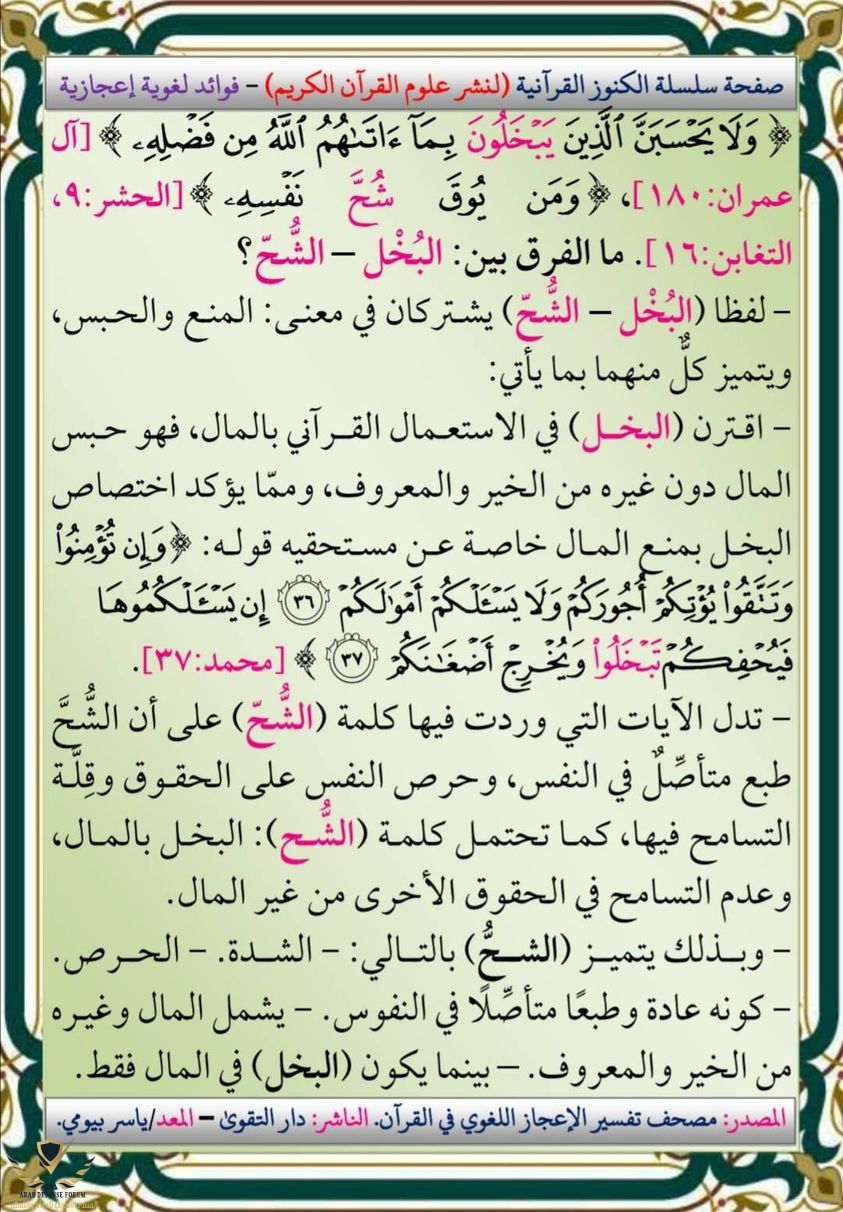 صفحة سلسلة الكنوز القرآنية (لنشر علوم القرآن الكريم) – فوائد لغوية إعجازية
﴿ وَلَا يَحْسَبَنَّ ٱلَّذِينَ يَبْخَلُونَ بِمَآ ءَاتَىٰهُمُ ٱللَّهُ مِن فَضْلِهِۦ ﴾ [آل
عمران:١٨٠]، ﴿ وَمَن يُوقَ شُحَّ نَفْسِهِۦ ﴾ [الحشر:٩،
التغابن:١٦]. ما الفرق بين: البُخْل – الشُّحّ؟
– لفظا (البُخْل – الشُّحّ) يشتركان في معنى: المنع والحبس،
ويتميز كلٌّ منهما بما يأتي:
– اقترن (البخل) في الاستعمال القرآني بالمال، فهو حبس
المال دون غيره من الخير والمعروف، وممّا يؤكد اختصاص
البخل بمنع المال خاصة عن مستحقيه قوله: ﴿وَإِن تُؤْمِنُوا۟
وَتَتَّقُوا۟ يُؤْتِكُمْ أُجُورَكُمْ وَلَا يَسْـَٔلْكُمْ أَمْوَٰلَكُمْ ٣٦ إِن يَسْـَٔلْكُمُوهَا
فَيُحْفِكُمْ تَبْخَلُوا۟ وَيُخْرِجْ أَضْغَـٰنَكُمْ ٣٧ ﴾ [محمد:٣٧].
– تدل الآيات التي وردت فيها كلمة (الشُّحّ) على أن الشُّحَّ
طبع متأصِّلٌ في النفس، وحرص النفس على الحقوق وقِلَّة
التسامح فيها، كما تحتمل كلمة (الشُّح): البخل بالمال،
وعدم التسامح في الحقوق الأخرى من غير المال.
– وبذلك يتميز (الشحُّ) بالتالي: – الشدة. – الحرص.
– كونه عادة وطبعًا متأصِّلًا في النفوس. – يشمل المال وغيره
من الخير والمعروف. – بينما يكون (البخل) في المال فقط.
المصدر: مصحف تفسير الإعجاز اللغوي في القرآن. الناشر: دار التقوىٰ – المعد/ياسر بيومي.
ARAB DEFENSE FORUM